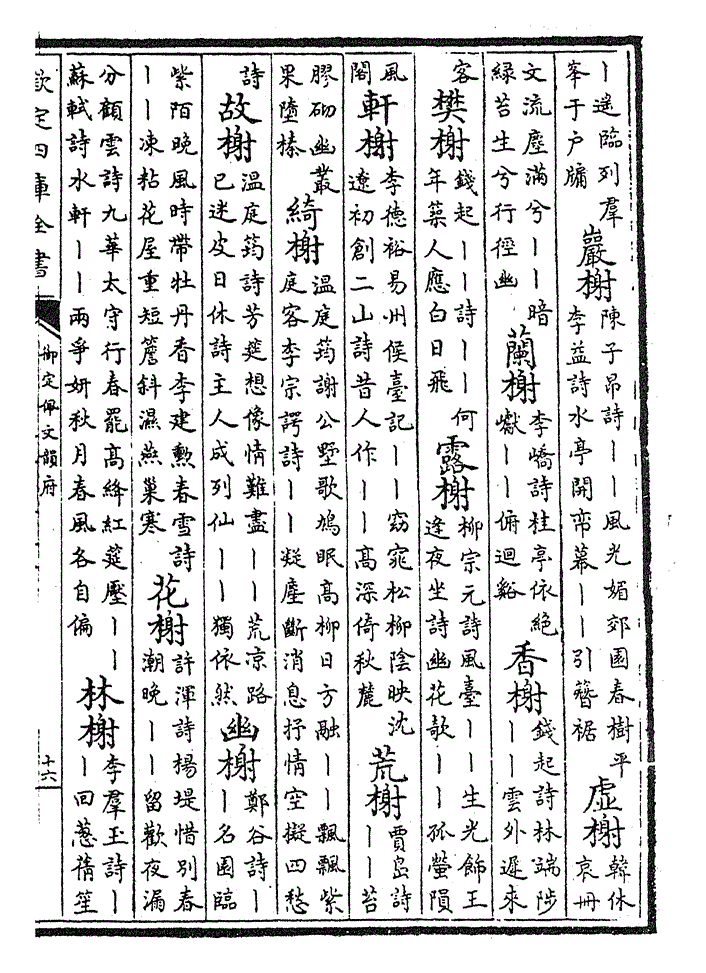 丨遥臨列羣
峯于户牖
巖榭
陳子昂詩丨丨風光媚郊園春樹平
李益詩水亭開帟幕丨丨引簪裾
虛榭
韓休
哀冊
文流塵滿兮丨丨暗
緑苔生兮行徑幽
蘭榭
李嶠詩桂亭依絶
巘丨丨俯迴谿
香榭
錢起詩林端陟
丨丨雲外遲来
容
樊榭
錢起丨丨詩丨丨何
年築人應白日飛
露榭
柳宗元詩風臺丨丨生光飾王
逢夜坐詩幽花歌丨丨孤螢隕
風
閣
軒榭
李德裕易州候臺記丨丨窈窕松柳陰映沈
遼初創二山詩昔人作丨丨高深倚秋麓
荒榭
賈島詩
丨丨苔
膠砌幽叢
果墮榛
綺榭
温庭筠謝公墅歌鳩眠高柳日方融丨丨飄飄紫
庭客李宗諤詩丨丨凝塵斷消息抒情空擬四愁
詩
故榭
温庭筠詩芳筵想像情難盡丨丨荒凉路
已迷皮日休詩主人成列仙丨丨獨依然
幽榭
鄭谷詩丨
丨名園臨
紫陌晚風時帶牡丹香李建勳春雪詩
丨丨凍粘花屋重短簷斜濕燕巢寒
花榭
許渾詩楊堤惜别春
潮晚丨丨留歡夜漏
分顧雲詩九華太守行春罷高絳紅筵壓丨丨
蘇軾詩水軒丨丨兩爭妍秋月春風各自偏
林榭
李羣玉詩丨
丨回葱蒨笙
欽定四庫全書
御定佩文韻府
十六